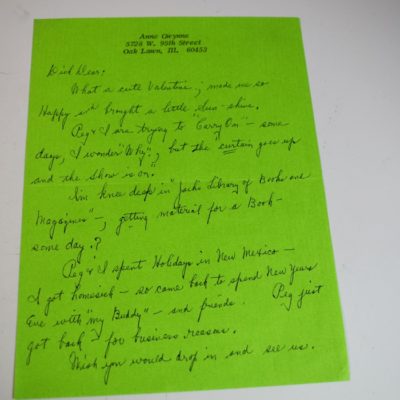 Anne Gwynne
5728 W. 95th Street
Oak Lawn, Ill. 60453
Dick Dear:
What a cute Valentine; made us so
Happy and brought a little sun-shine.
Peg & I are trying to "Carry On" - some
days, I wonder "Why"? but the curtain goes up
and the show is on!
I'm knee deep in "Jack's Library of Books and
Magazines" -, getting material for a Book -
some day?
Peg & I spent Holidays in New Mexico -
I got homesick - so came back to spend New Years
Eve with "my Buddy" - and friends. Peg just
got back - for business reasons.
Wish you would drop in and see us.